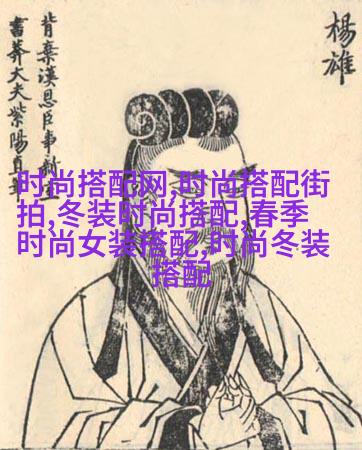 楊雄
背棄漢恩臣事新
書莽大夫紫陽直
时尚搭配网,时尚搭配街
拍,冬装时尚搭配,春季
时尚女装搭配,时尚冬装
搭配